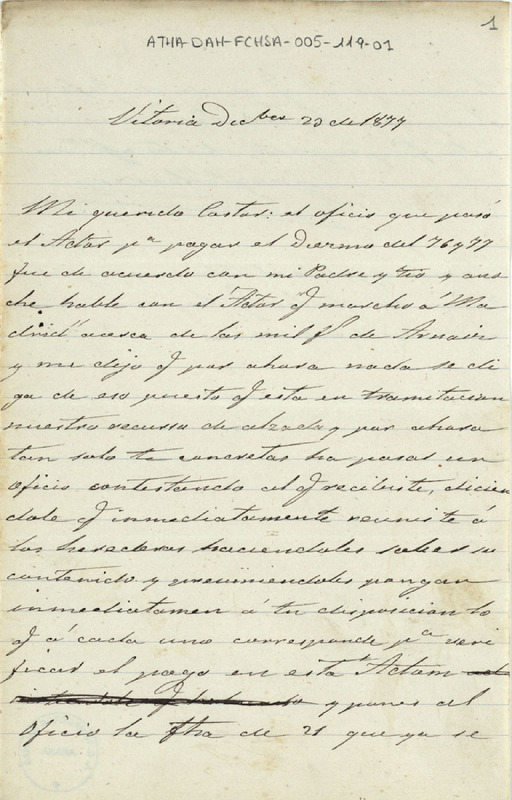 1
ATHA-DAH-FCHSA-005-119-01
Vitoria Dicbre 23 de 1877
Mi querido Castor: el oficio que pasó
el Actor pª pagar el Diezmo del 76 y 77
fue de acuerdo con mi Padre y tio y ano
che hable con el Actor q marcho á Ma
drid acerca de las mil de
y me dijo q por ahora nada se di
ga de eso puesto q esta en tramitacion
nuestro recurso de alzada y por ahora
tan solo te concretas ha pasar un
oficio contestando al q recibiste, dicien
dole q inmediatamente reuniste á
los herederos haciendoles saber su
contenido y pongan
inmediatamen á tu disposicion lo
q á cada uno corresponde pª veri
ficar el pago en esta
y pones al
oficio la fha de 21 que ya se